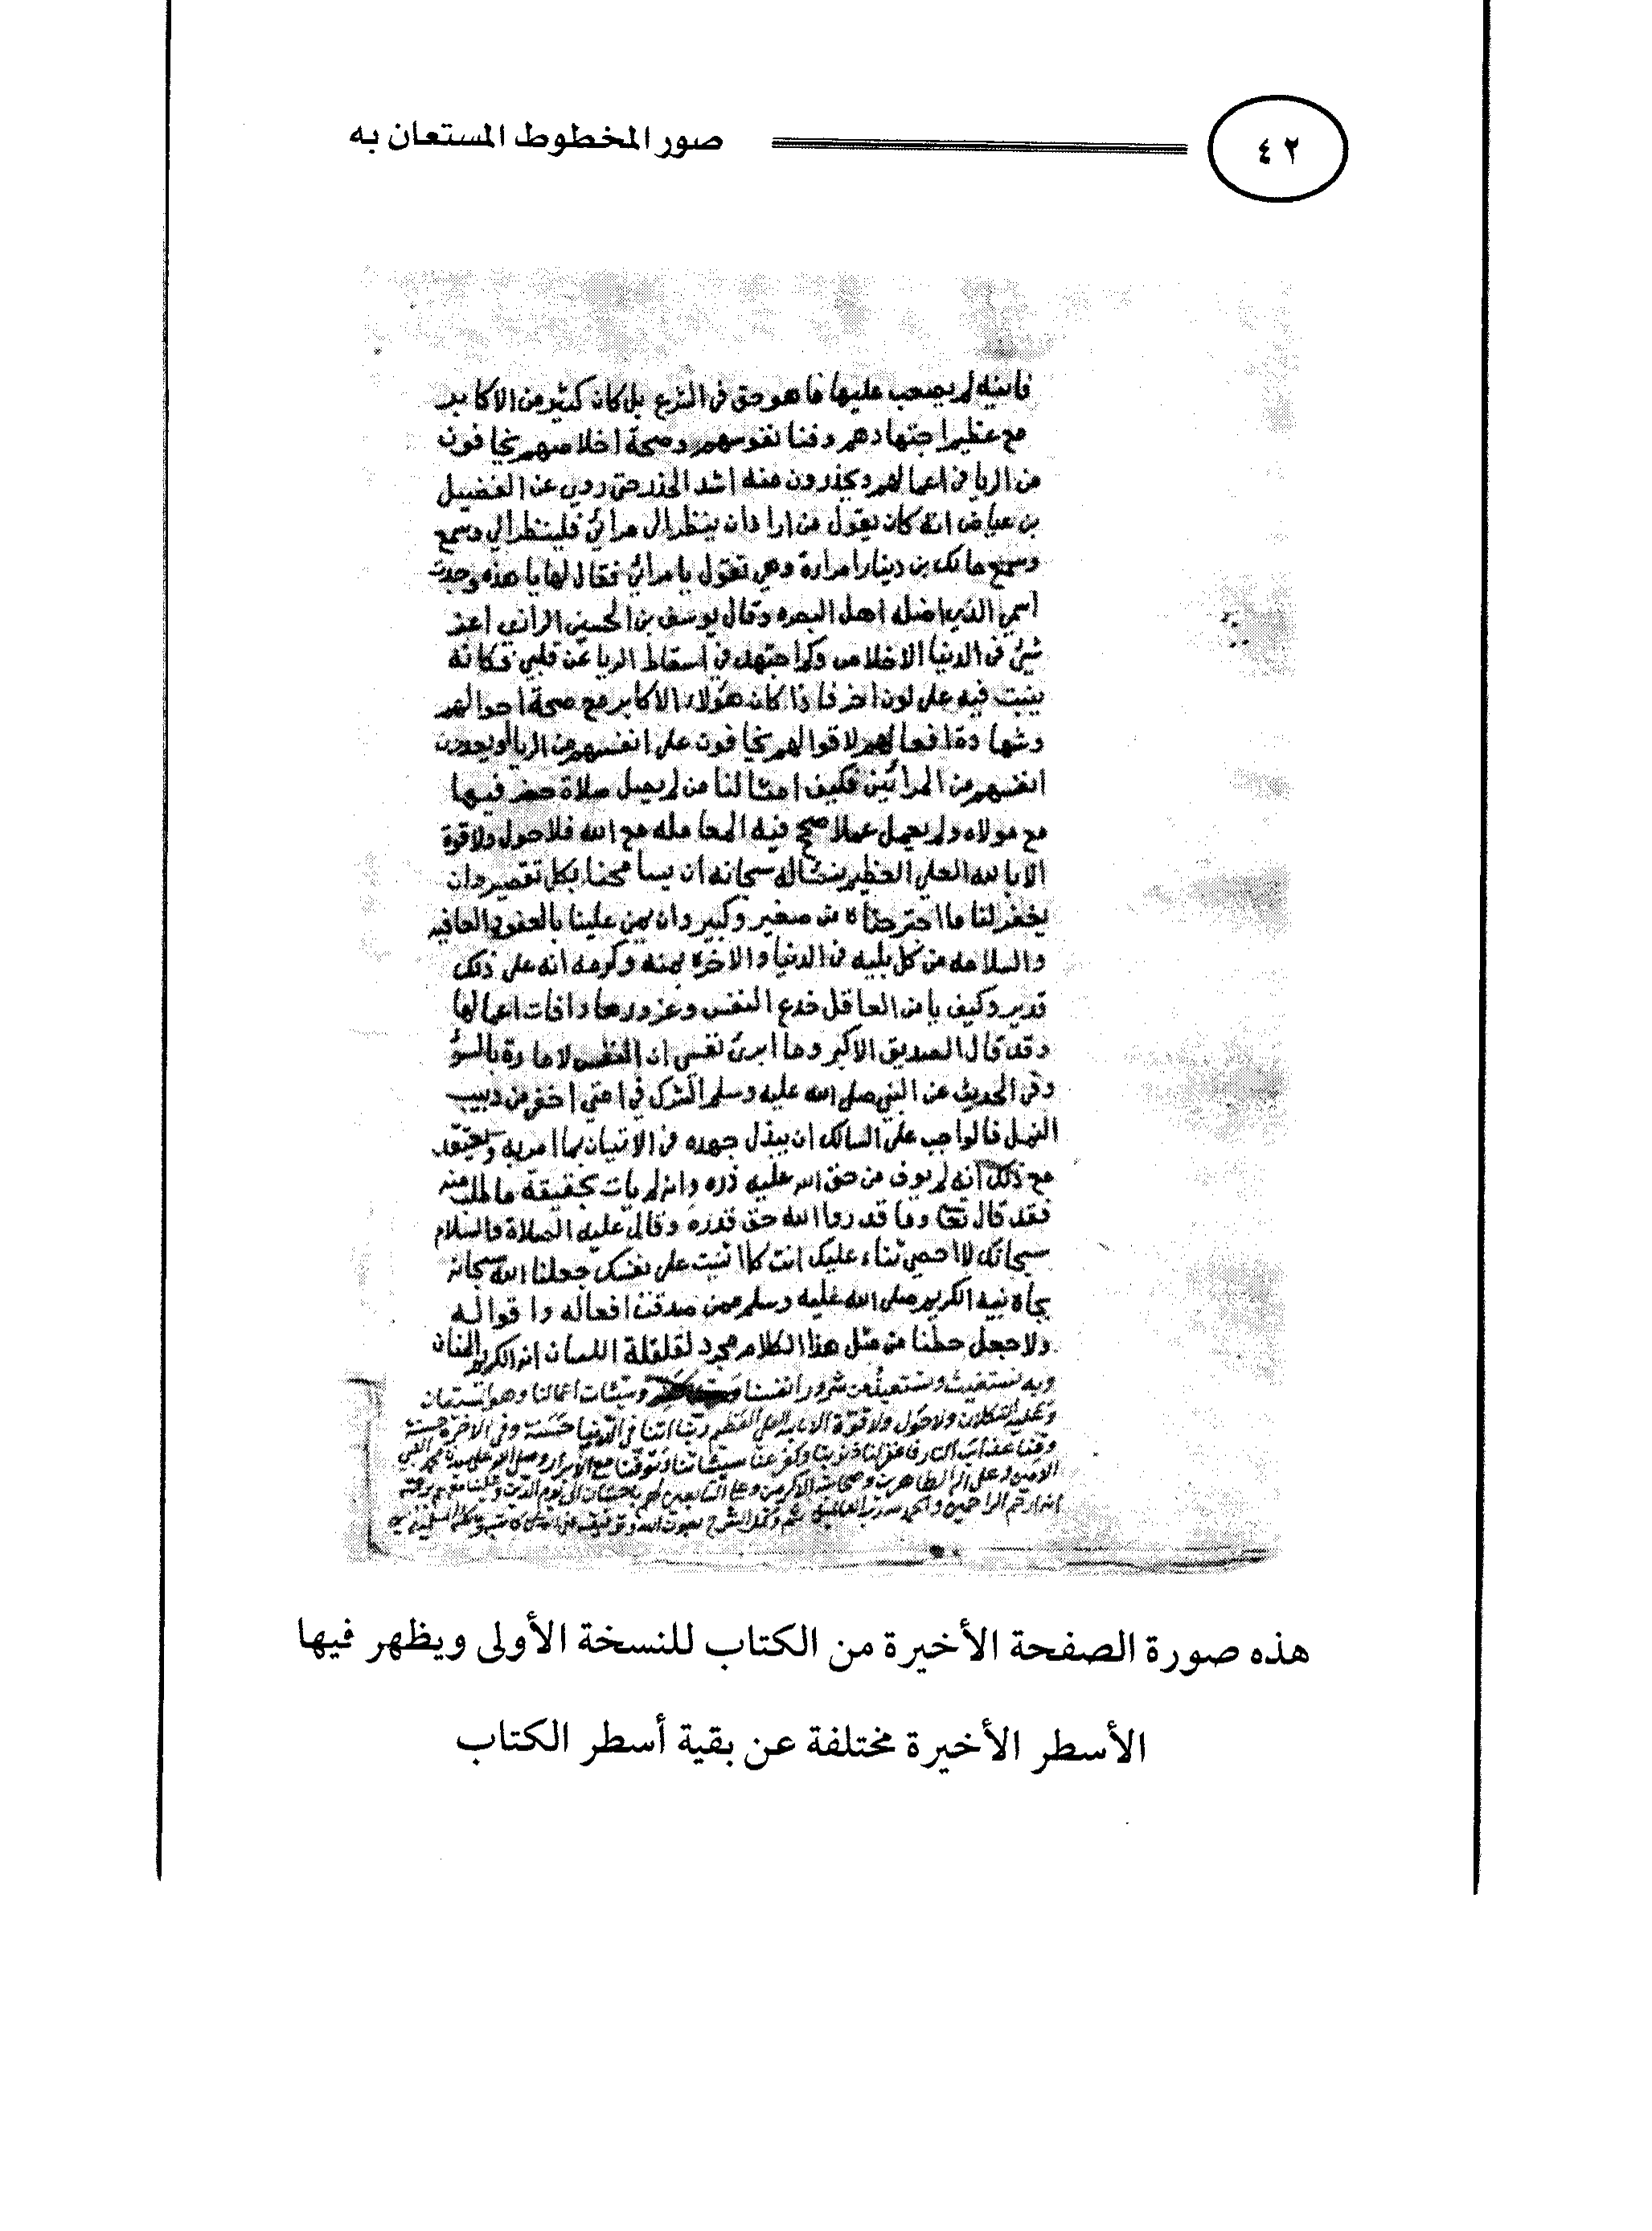 ٤٢
صور المخطوط المستعان به
فانيه لم يصعب عليها ما هو حق في الشرع بل كان كثير من الاكابر
مع عظيم اجتهادهم وفنا نفوسهم وصحة اخلاصهم يخافون
من الريا في اعمالهم ويحذرون منه اشد الحذر حتى روي عن الفضيل
بن عياض انه كان يقول من اراد ان ينظر الى مرائي فلينظر الي وسمع
وسمع مالك بن دينار امراة وهي تقول يا مرائي فقال لها يا هذه وجدت
اسمي الذي اضله اهل البصره وقال يوسف بن الحسين الرازي اعز
شئ في الدنيا الاخلاص وكم اجتهد في اسقاط الريا عن قلبي فكانه
ينبت فيه على لون اخر فاذا كان هؤلاء الاكابر مع صحة احوالهم
وشهادة افعالهم لاقوالهم يخافون على انفسهم من الريا ويعدون
انفسهم من المرائين فكيف امثالنا من لم يصل صلاة حضر فيها
مع مولاه ولم يعمل عملا صح فيه المعامله مع الله فلا حول ولا قوة
الا بالله العلي العظيم نساله سبحانه ان يسامحنا بكل تقصير وان
يغفر لنا ما اجترحناه من صغير وكبير وان يمن علينا بالعفو والعافيه
والسلامه من كل بليه في الدنيا والاخره بمنه وكرمه انه على ذلك
قدير وكيف يامن العاقل خدع النفس وغرورها وافات اعمالها
وقد قال الصديق الاكبر وما ابرئ نفسي ان النفس لامارة بالسؤ
وفي الحديث عن النبي صلى الله عليه وسلم الشرك في امتي اخفى من دبيب
النمل فالواجب على السالك ان يبذل جهده في الاتيان بما امر به ويعتقد
مع ذلك انه لم يوف من حق الله عليه ذره وانه لم يات بحقيقة ما طلب منه
فقد قال تعا وما قدروا الله حق قدره وقال عليه الصلاة والسلام
سبحانك لا احصي ثناء عليك انت كما اثنيت على نفسك جعلنا الله سبحانه
بجاه نبيه الكريم صلى الله عليه وسلم ممن صدقت افعاله واقواله
ولا جعل حظنا من مثل هذا الكلام مجرد لقلقلة اللسان انه الكريم المنان
وبه نستغيث ونستعيذ من شرور انفسنا وسيئات اعمالنا وهو المستعان
وعليه التكلان ولا حول ولا قوة الا بالله العلي العظيم ربنا اتنا في الدنيا حسنة وفي الاخرة حسنة
وقنا عذاب النار فاغفر لنا ذنوبنا وكفر عنا سيئاتنا وتوفنا مع الابرار وصلى الله على سيدنا محمد النبي
الامين وعلى اله الطاهرين وصحابته الاكرمين وعلى التابعين لهم باحسان الى يوم الدين وعلينا معهم برحمته
انه ارحم الراحمين والحمد لله رب العالمين تم وكمل الشرح بعون الله وتوفيقه
هذه صورة الصفحة الأخيرة من الكتاب للنسخة الأولى ويظهر فيها
الأسطر الأخيرة مختلفة عن بقية أسطر الكتاب